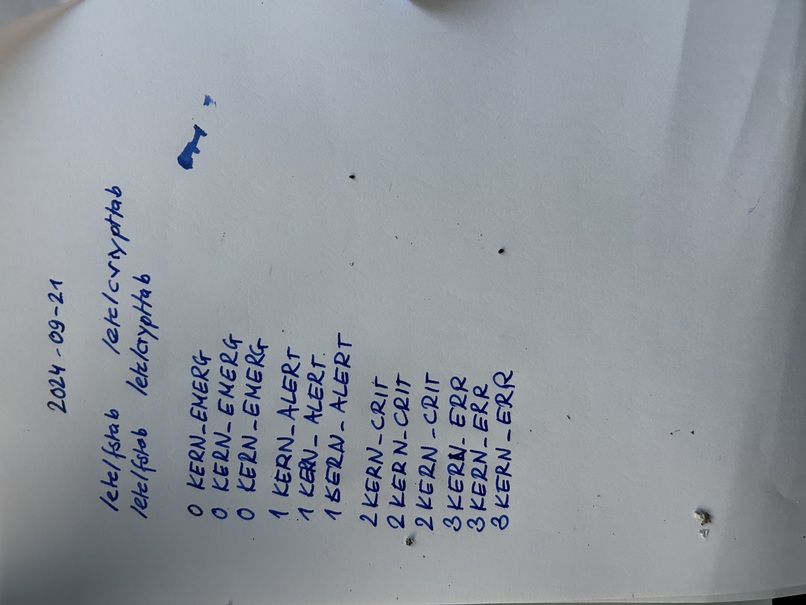 2024-09-21
/etc/fstab /etc/cryypttab
/etc/fstab /etc/crypttab
0 KERN_EMERG
0 KERN_EMERG
0 KERN_EMERG
1 KERN_ALERT
1 KERN_ALERT
1 KERN_ALERT
2 KERN_CRIT
2 KERN_CRIT
2 KERN_CRIT
3 KERN_ERR
3 KERN_ERR
3 KERN_ERR